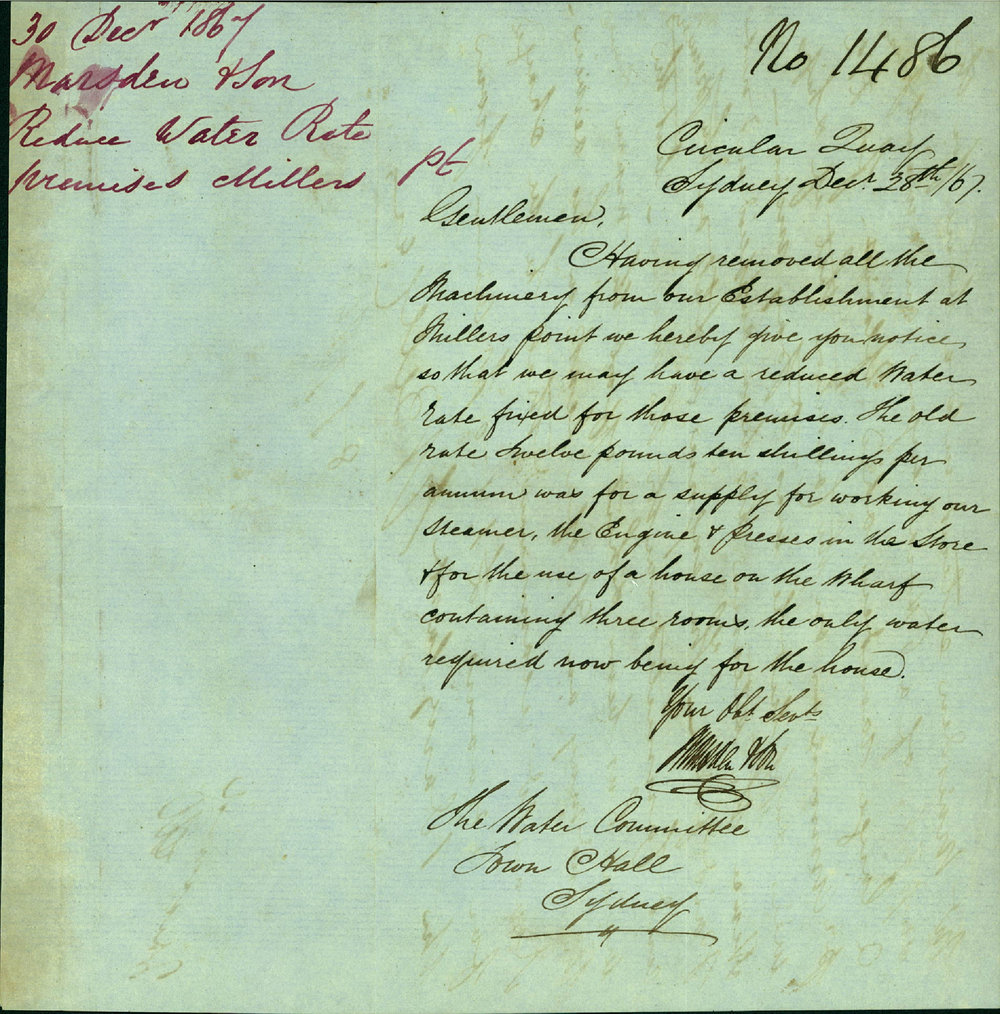 30 Decr 1867
Marsden & Son
Reduce Water Rate
premises Millers pt
No 1486
Circular Quay
Sydney Decr 28th/67.
Gentlemen,
Having removed all the
Machinery from our Establishment at
Millers point we hereby give you notice
so that we may have a reduced Water
rate fixed for those premises. The old
rate twelve pounds ten shillings per
annum was for a supply for working our
steamer, the Engine & Presses in the Store
& for the use of a house on the Wharf
containing three rooms, the only water
required now being for the house.
Your Obt Servts
Marsden & Son
The Water Committee
Town Hall
Sydney